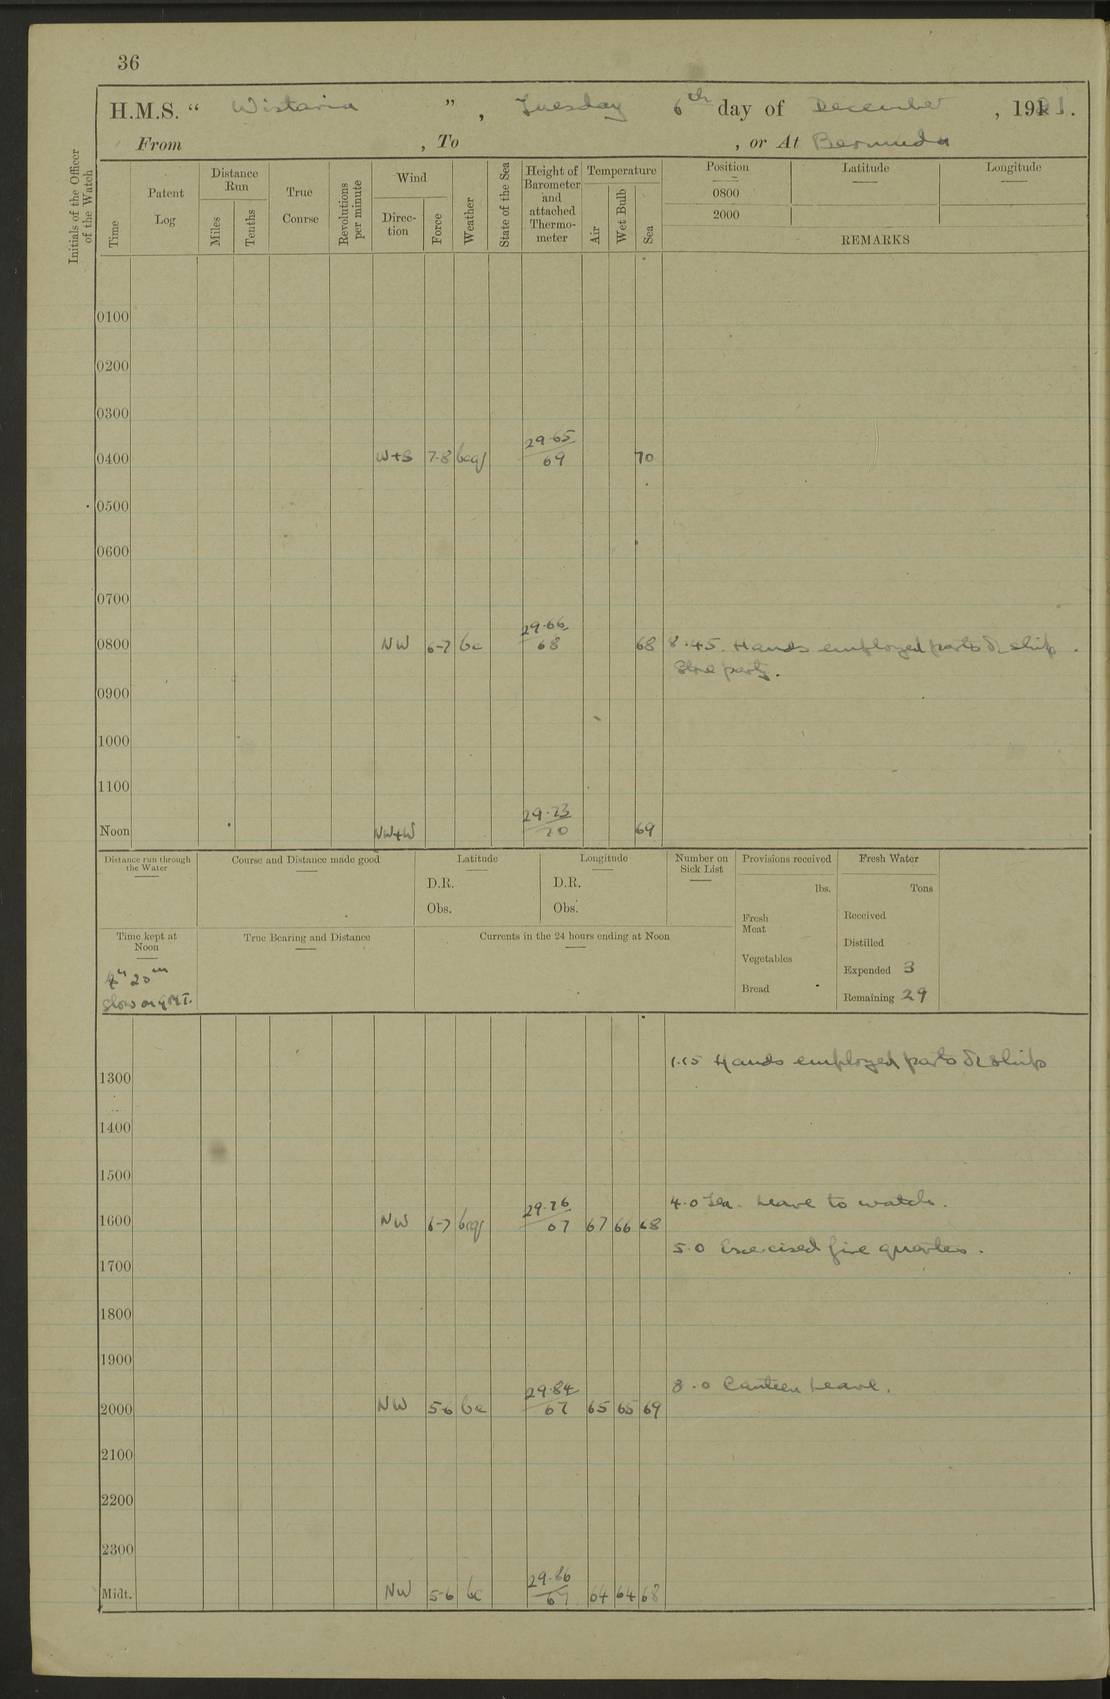 36
H.M.S. “ Wistaria ” , Tuesday 6th day of December , 1921.
From , To , or At Bermuda
Initials of the Officer of the Watch
Time
Patent Log
Distance Run
Miles
Tenths
True Course
Revolutions per minute
Wind
Direc-tion
Force
Weather
State of the Sea
Height of Barometer and attached Thermo-meter
Temperature
Air
Wet Bulb
Sea
Position
0800
2000
Latitude
Longitude
REMARKS
0100
0200
0300
0400 W+S 7-8 bcq 29.65 69 70
0500
0600
0700
0800 NW 6-7 bc 29.66 68 68 8.45. Hands employed parts of ship.
Store party.
0900
1000
1100
Noon NW+W 29.73 70 69
Distance run through the Water
Course and Distance made good
Latitude
D.R.
Obs.
Longitude
D.R.
Obs.
Number on Sick List
Provisions received
lbs.
Fresh Meat
Vegetables
Bread
Fresh Water
Tons
Received
Distilled
Expended 3
Remaining 29
Time kept at Noon
4h 20m
Slow on GMT.
True Bearing and Distance
Currents in the 24 hours ending at Noon
1.15 Hands employed parts of ship
1300
1400
1500
4.0 Leave to watch.
1600 NW 6-7 bcq 29.76 67 67 66 68
5.0 Exercised fire quarters.
1700
1800
1900
8.0 Canteen Leave.
2000 NW 5-6 bc 29.84 67 65 65 69
2100
2200
2300
Midt. NW 5-6 bc 29.86 67 64 64 68